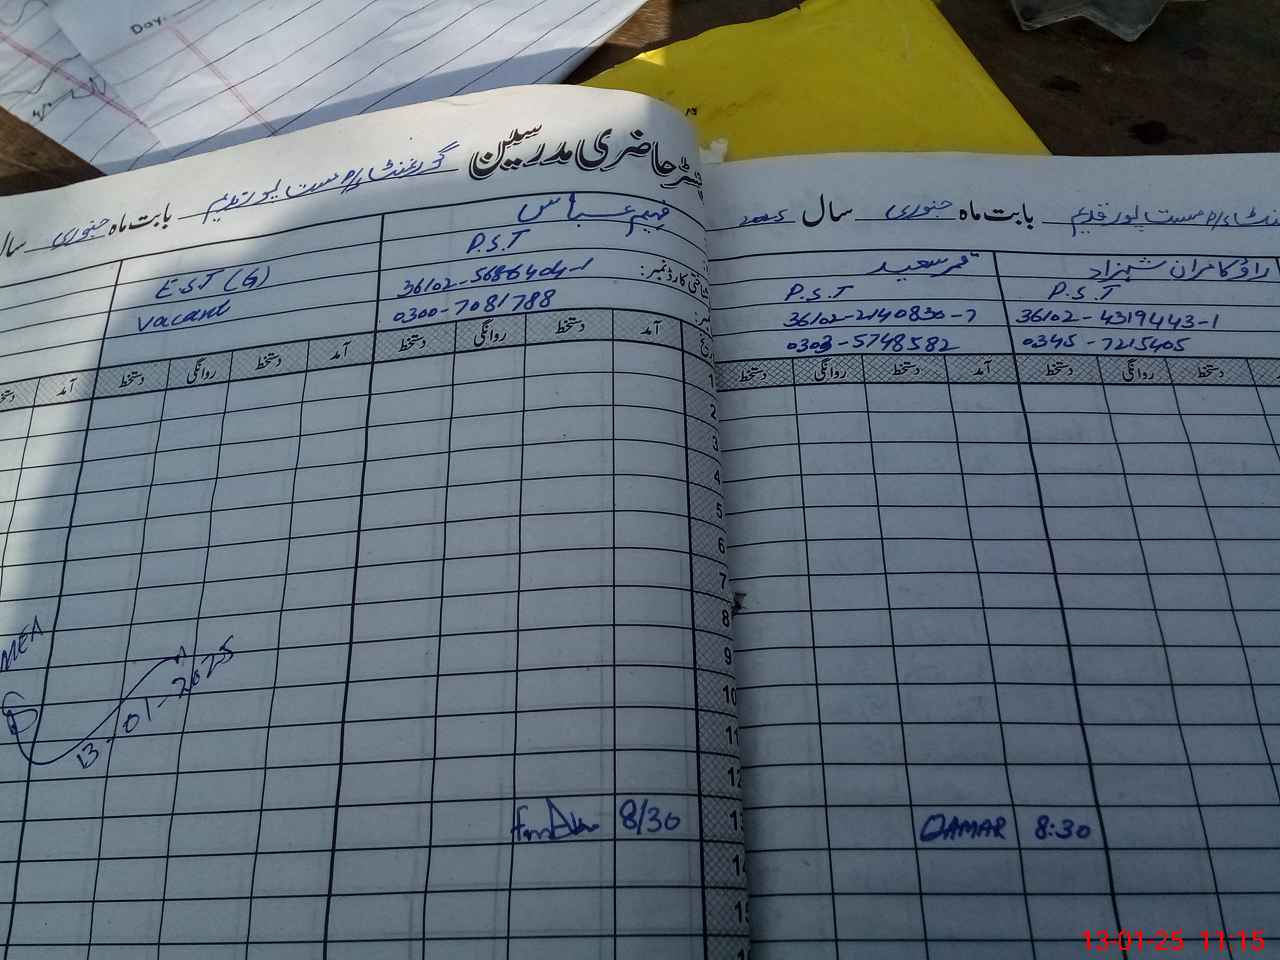 Day.
رجسٹر حاضری مدرسین گورنمنٹ ا/پ مست پور قدیم بابت ماہ جنوری سال
فہیم عباس
P.S.T
E.S.T (G)
شناختی کارڈ نمبر: 36102-5686404-1
Vacant
0300-7081788
آمد دستخط روانگی دستخط آمد دستخط روانگی دستخط آمد
1
2
3
4
5
6
7
8
9
10
11
12
13 8/30
14
15
MEA
13-01-2025
ا/پ مست پور قدیم بابت ماہ جنوری سال 2025
راؤ کامران شہزاد قمر سعید
P.S.T P.S.T
36102-2140830-7 36102-4319443-1
0303-5748582 0345-7215405
دستخط روانگی دستخط آمد دستخط روانگی دستخط
QAMAR 8:30
13-01-25 11:15